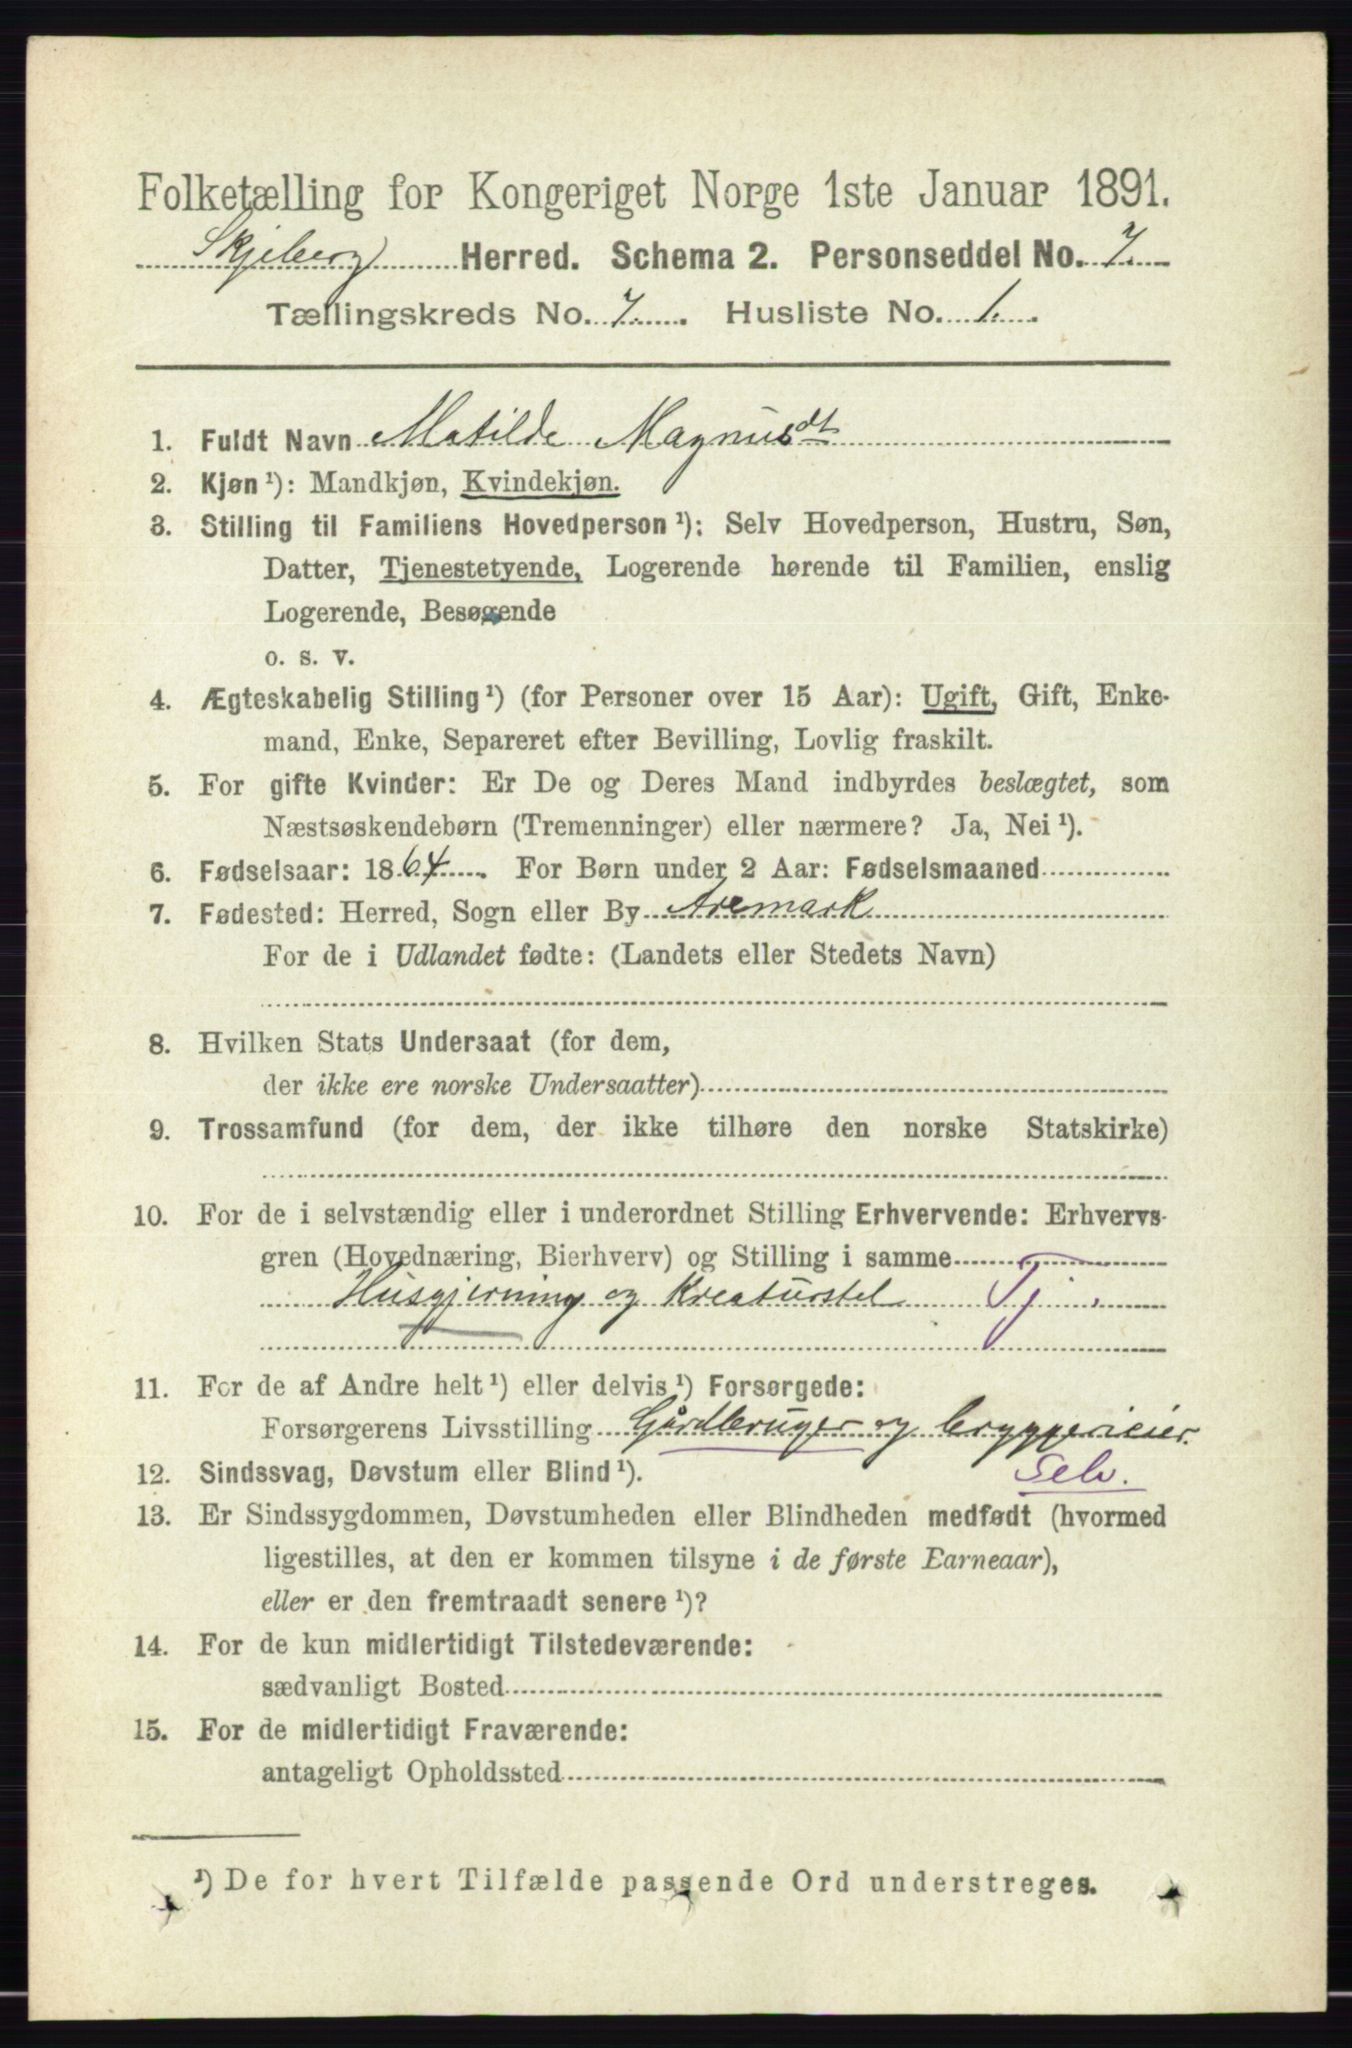 Folketælling for Kongeriget Norge 1ste Januar 1891.
Skjeberg Herred. Schema 2. Personseddel No. 7.
Tællingskreds No. 7. Husliste No. 1.
1. Fuldt Navn Matilde Magnusdt
2. Kjøn ¹): Mandkjøn, Kvindekjøn.
3. Stilling til Familiens Hovedperson ¹): Selv Hovedperson, Hustru, Søn,
Datter, Tjenestetyende, Logerende hørende til Familien, enslig
Logerende, Besøgende
o. s. v.
4. Ægteskabelig Stilling ¹) (for Personer over 15 Aar): Ugift, Gift, Enke-
mand, Enke, Separeret efter Bevilling, Lovlig fraskilt.
5. For gifte Kvinder: Er De og Deres Mand indbyrdes beslægtet, som
Næstsøskendebørn (Tremenninger) eller nærmere? Ja, Nei ¹).
6. Fødselsaar: 1864. For Børn under 2 Aar: Fødselsmaaned
7. Fødested: Herred, Sogn eller By Aremark
For de i Udlandet fødte: (Landets eller Stedets Navn)
8. Hvilken Stats Undersaat (for dem,
der ikke ere norske Undersaatter)
9. Trossamfund (for dem, der ikke tilhøre den norske Statskirke)
10. For de i selvstændig eller i underordnet Stilling Erhvervende: Erhvervs-
gren (Hovednæring, Bierhverv) og Stilling i samme
Husgjerning og Kreaturstel Tj.
11. For de af Andre helt ¹) eller delvis ¹) Forsørgede:
Forsørgerens Livsstilling Gårdbruger og bryggerieier.
12. Sindssvag, Døvstum eller Blind ¹). Selv.
13. Er Sindssygdommen, Døvstumheden eller Blindheden medfødt (hvormed
ligestilles, at den er kommen tilsyne i de første Barneaar),
eller er den fremtraadt senere ¹)?
14. For de kun midlertidigt Tilstedeværende:
sædvanligt Bosted
15. For de midlertidigt Fraværende:
antageligt Opholdssted
¹) De for hvert Tilfælde passende Ord understreges.